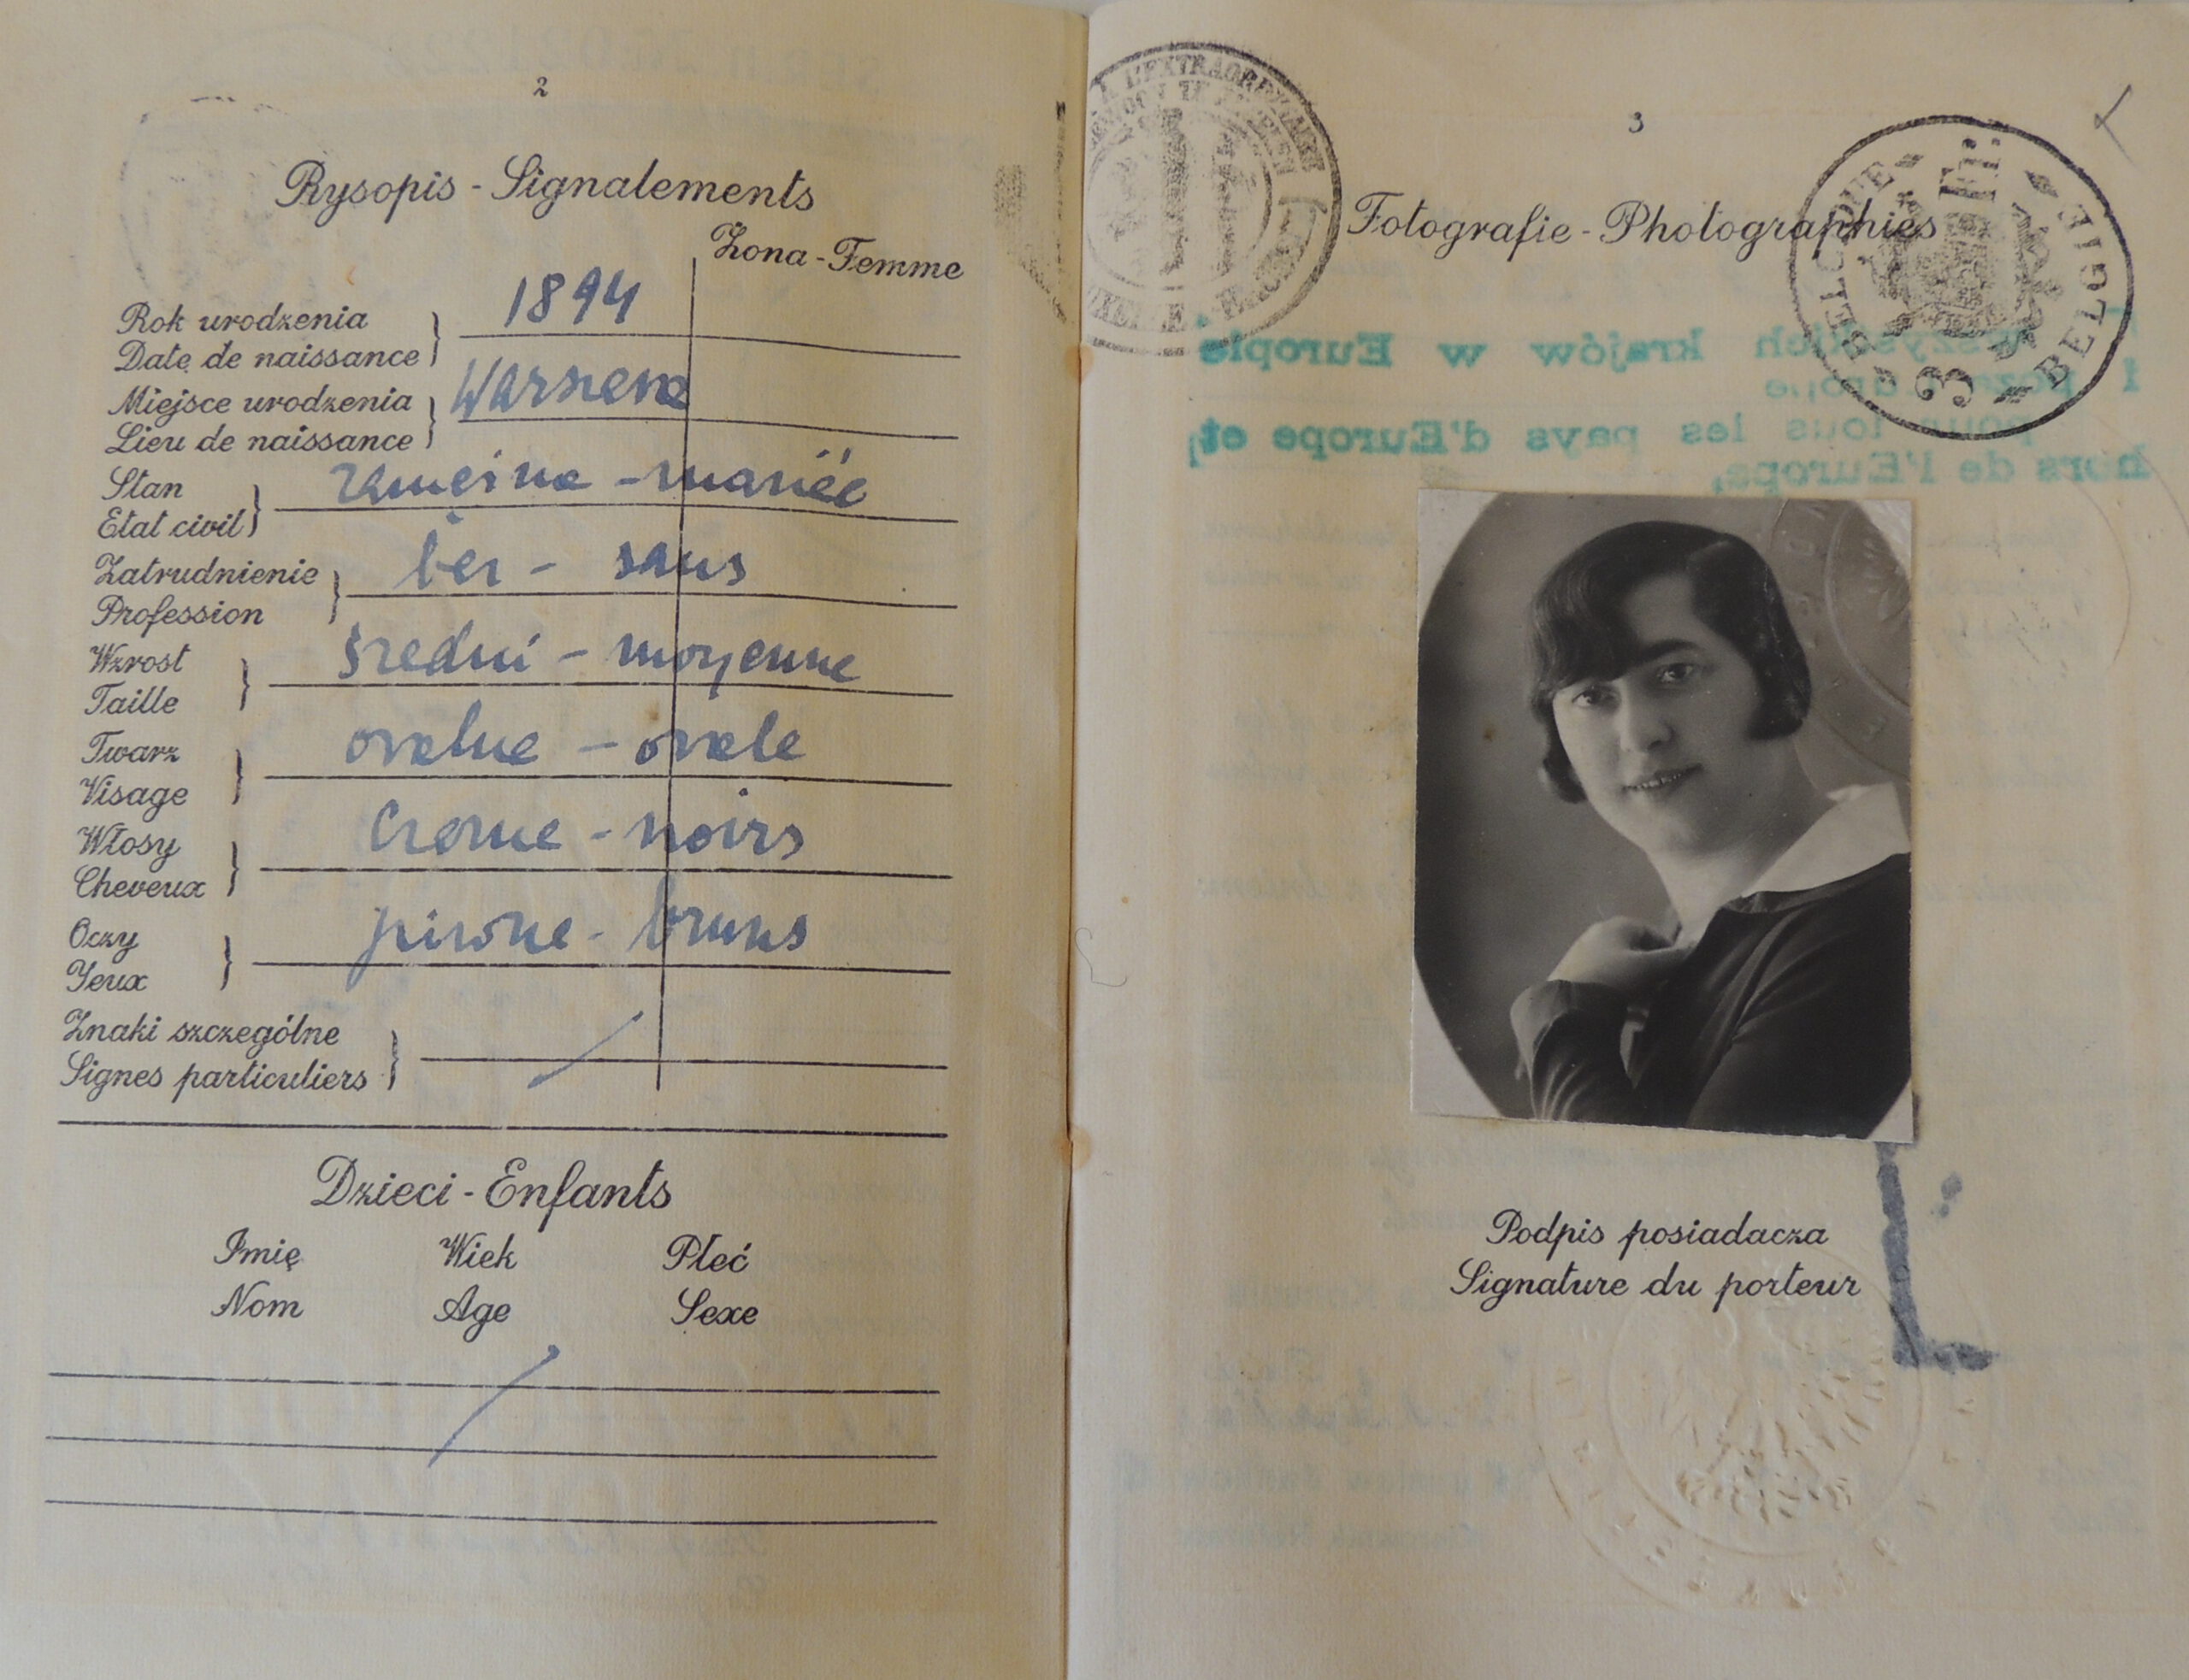 2
Rysopis - Signalements
Żona - Femme
Rok urodzenia
Date de naissance
1894
Miejsce urodzenia
Lieu de naissance
Warszawa
Stan
Etat civil
zamężna - mariée
Zatrudnienie
Profession
bez - sans
Wzrost
Taille
średni - moyenne
Twarz
Visage
owalna - ovale
Włosy
Cheveux
czarne - noirs
Oczy
Yeux
piwne - bruns
Znaki szczególne
Signes particuliers
Dzieci - Enfants
Imię Wiek Płeć
Nom Age Sexe
3
Fotografie - Photographies
L'EXTRAORDINAIRE
BELGIQUE
3 Fr.
BELGIË
wszystkich krajów w Europie
pour tous les pays d'Europe et
hors de l'Europe,
Podpis posiadacza
Signature du porteur